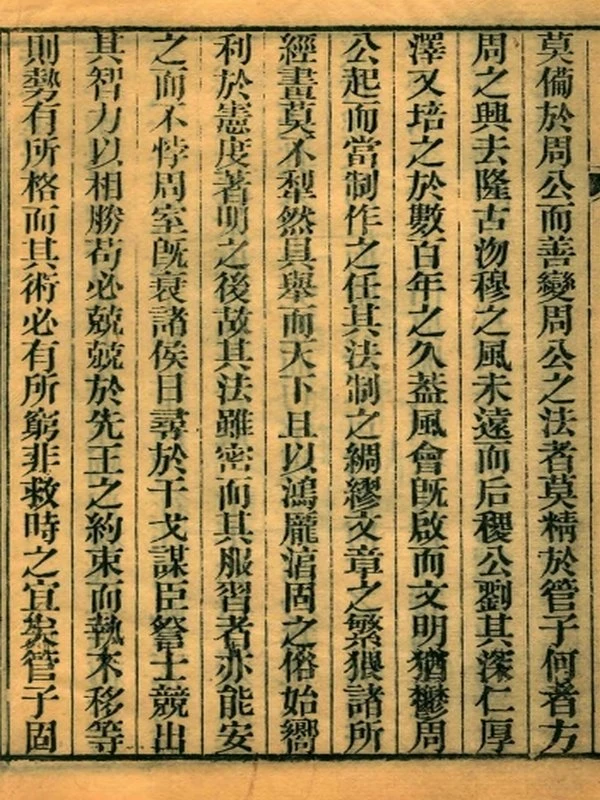 莫備於周公而善變周公之法者莫精於管子何者方
周之興去隆古沕穆之風未遠而后稷公劉其深仁厚
澤又培之於數百年之久葢風會旣啟而文明猶鬱周
公起而當制作之任其法制之綢繆文章之繁猥諸所
經畫莫不犁然具舉而天下且以鴻龐湻固之俗始嚮
利於憲度著明之後故其法雖密而其服習者亦能安
之而不悖周室旣衰諸侯日尋於干戈謀臣策士競出
其智力以相勝苟必兢兢於先王之約束而執不移等
則勢有所格而其術必有所窮非救時之宜矣管子固